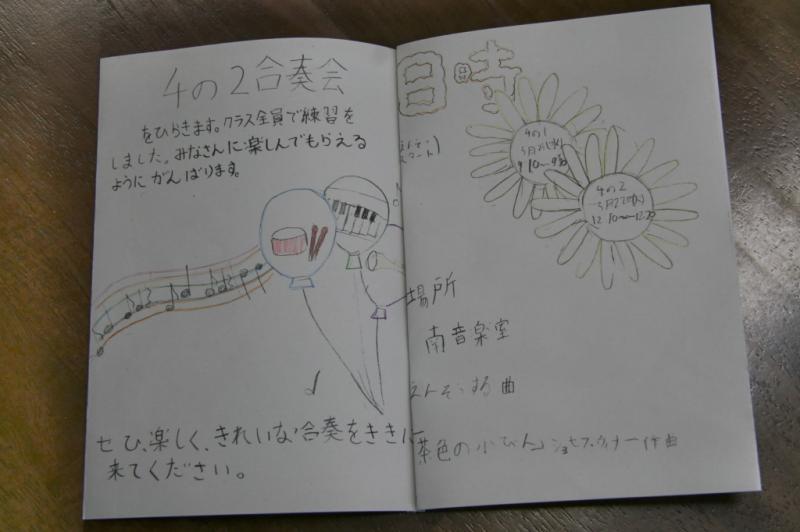 4の2合奏会
をひらきます。クラス全員で練習を
しました。みなさんに楽しんでもらえる
ようにがんばります。
ぜひ、楽しく、きれいな合奏をききに
来てください。
日時
4の1
4の2
場所
南音楽室
えんそうする曲
茶色の小びん」ジョセフ・ウィナー作曲